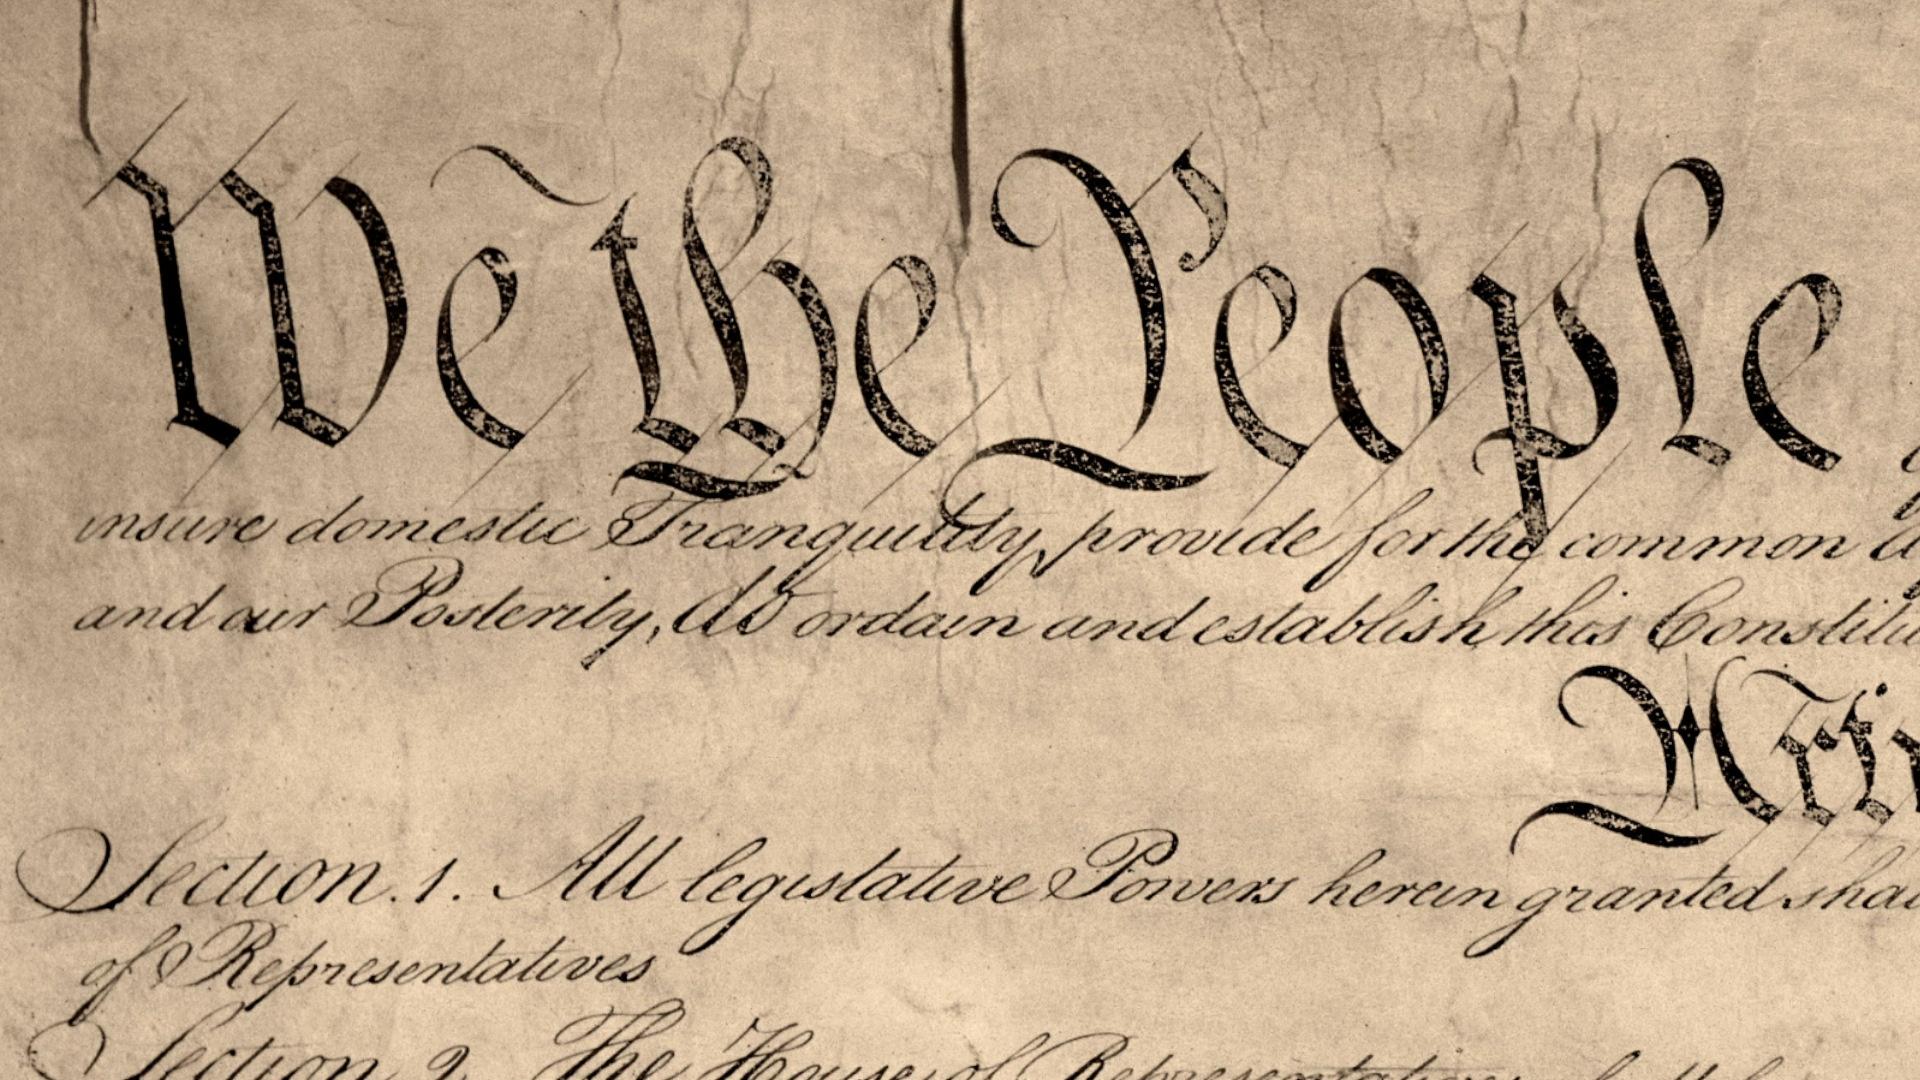 We the People
insure domestic Tranquility, provide for the common
and our Posterity, do ordain and establish this Constitu
Section. 1. All legislative Powers herein granted shal
of Representatives
Section 2. The House of Representatives